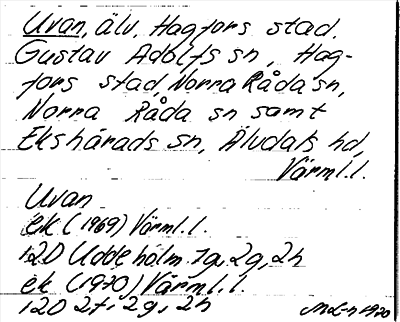 Uvan, älv, Hagfors stad.
Gustav Adolfs sn, Hag-
fors stad, Norra Råda sn,
Norra Råda sn samt
Ekshärads sn, Älvdals hd,
Värml.l.
Uvan
ek (1969) Värml.l.
120 Uddeholm. 1g, 2g, 2h
ek (1970), Värml.l.
120 2f, 2g, 2h
1970